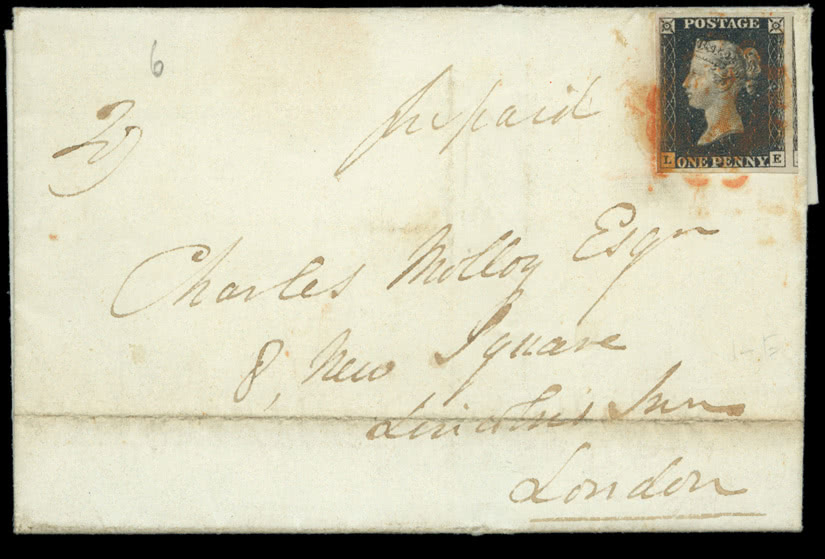 6
POSTAGE
Prepaid
L ONE PENNY E
Charles Molloy Esqr
8, New Square
Lincoln's Inn
London
L-E